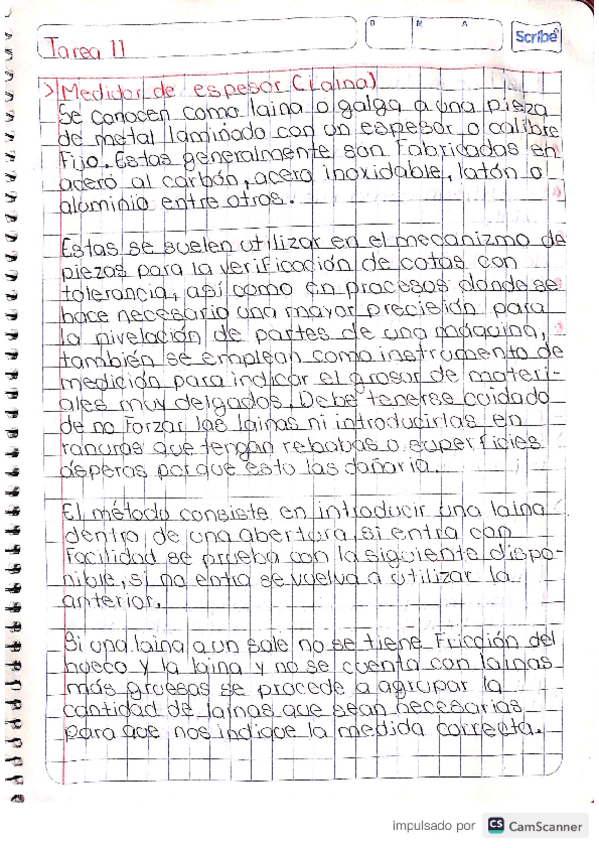 D M A
Scribe
Tarea 11
> Medidor de espesor (Laina)
Se conocen como laina o galga a una pieza
de metal laminado con un espesor o calibre
fijo. Estas generalmente son fabricadas en
acero al carbón, acero inoxidable, latón o
aluminio entre otros.
Estas se suelen utilizar en el mecanizmo de
piezas para la verificación de cotas con
tolerancia, así como en procesos donde se
hace necesario una mayor precisión para
la nivelación de partes de una máquina,
también se emplean como instrumento de
medición para indicar el grosor de materi-
ales muy delgados. Debe tenerse cuidado
de no forzar las lainas ni introducirlas en
ranuras que tengan rebabas o superficies
ásperas porque esto las dañaría.
El método consiste en introducir una laina
dentro de una abertura, si entra con
facilidad se prueba con la siguiente dispo-
nible, si no entra se vuelva a utilizar la
anterior.
Si una laina aun sale no se tiene fricción del
hueco y la laina y no se cuenta con lainas
más gruesas se procede a agrupar la
cantidad de lainas que sean necesarias
para que nos indique la medida correcta.
impulsado por CS CamScanner